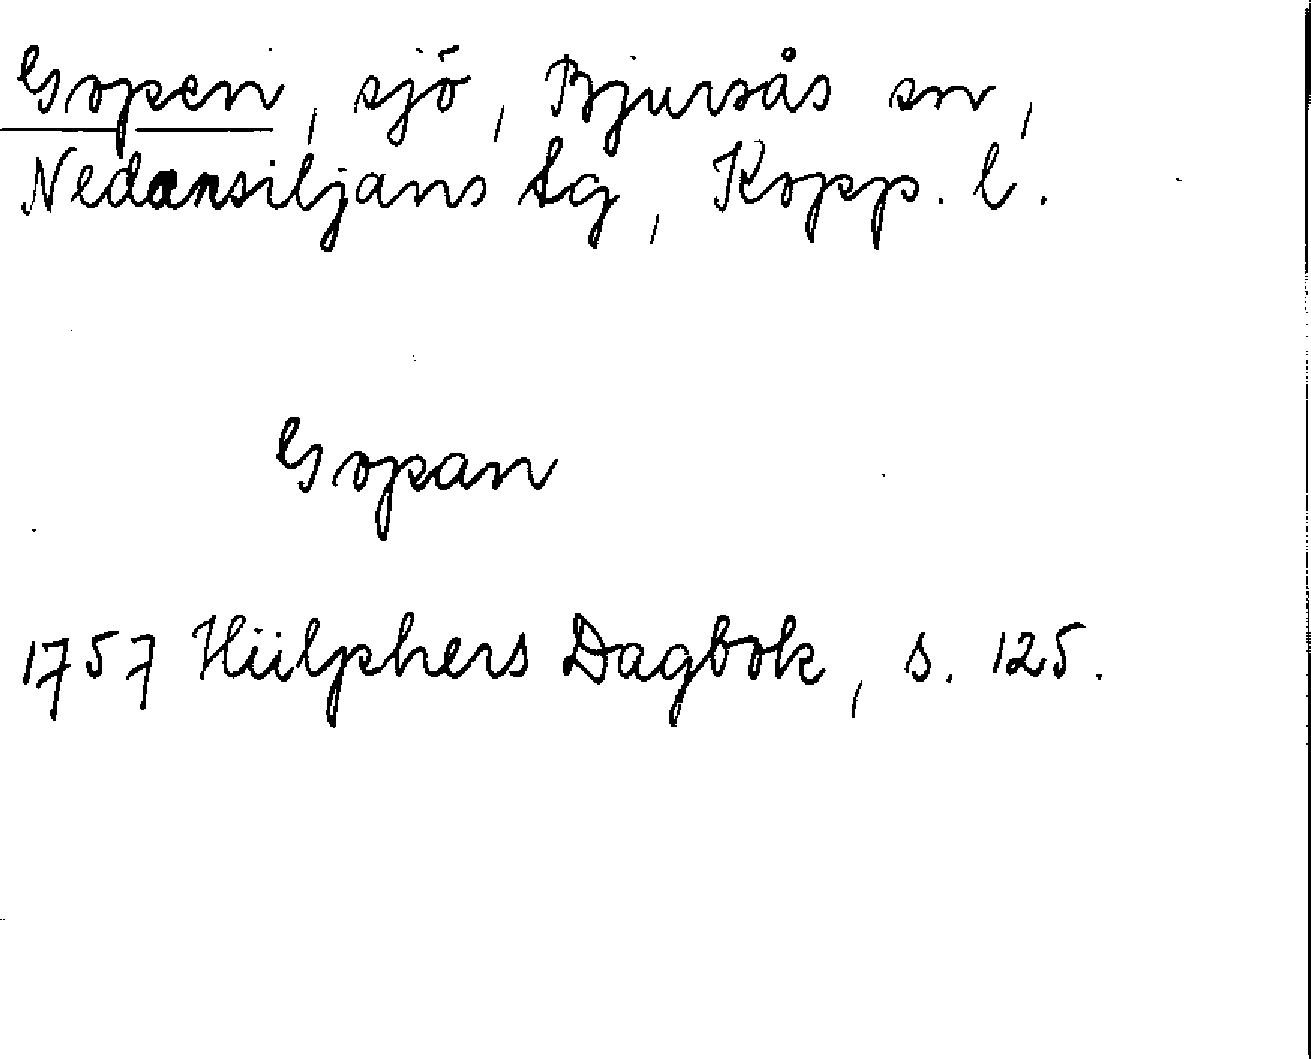 Gopen, sjö, Bjursås sn,
Nedansiljans tg, Kopp. l.
Gopan
1757 Hülphers Dagbok, s. 125.